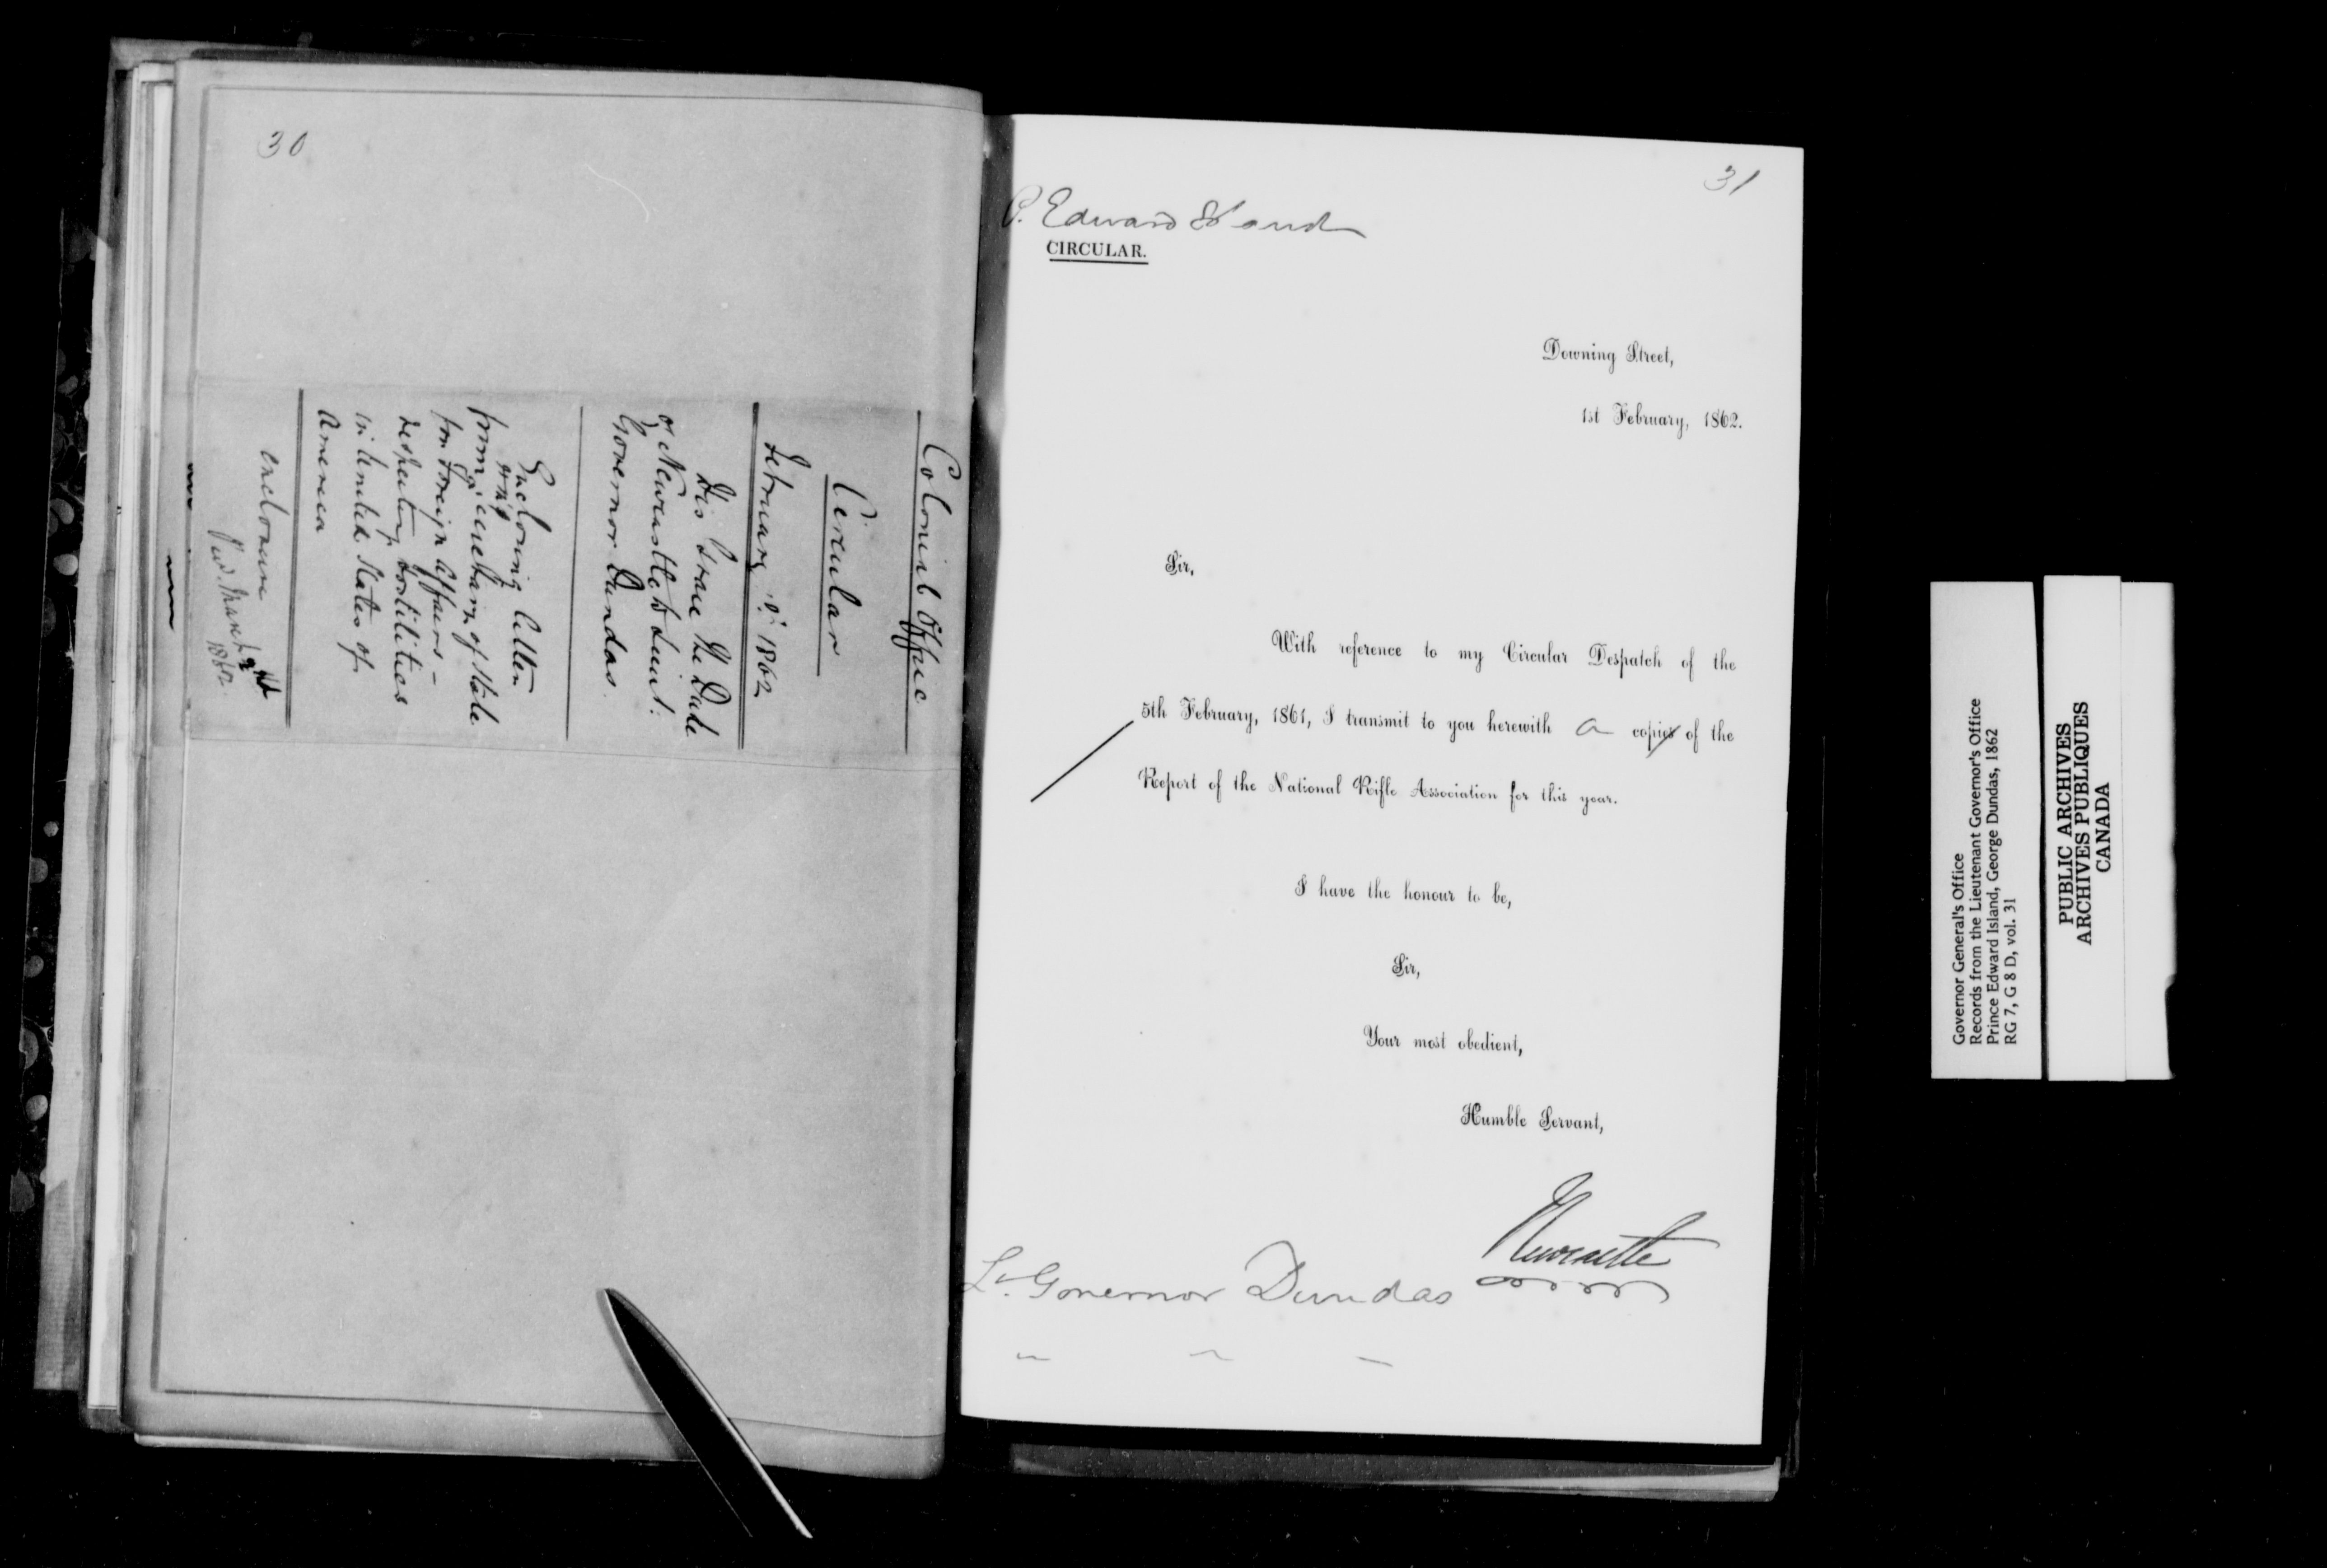 30
Colonial Office
Circular
February 1st 1862
His Grace the Duke
of Newcastle to Lieut:
Governor Dundas.
Enclosing letter
from Secretary of State
for Foreign Affairs -
respecting hostilities
in United States of
America
enclosure
1862
31
P. Edward Island
CIRCULAR.
Downing Street,
1st February, 1862.
Sir,
With reference to my Circular Despatch of the
5th February, 1861, I transmit to you herewith a copies of the
Report of the National Rifle Association for this year.
I have the honour to be,
Sir,
Your most obedient,
Humble Servant,
Newcastle
Lt. Governor Dundas
Governor General's Office
Records from the Lieutenant Governor's Office
Prince Edward Island, George Dundas, 1862
RG 7, G 8 D, vol. 31
PUBLIC ARCHIVES
ARCHIVES PUBLIQUES
CANADA